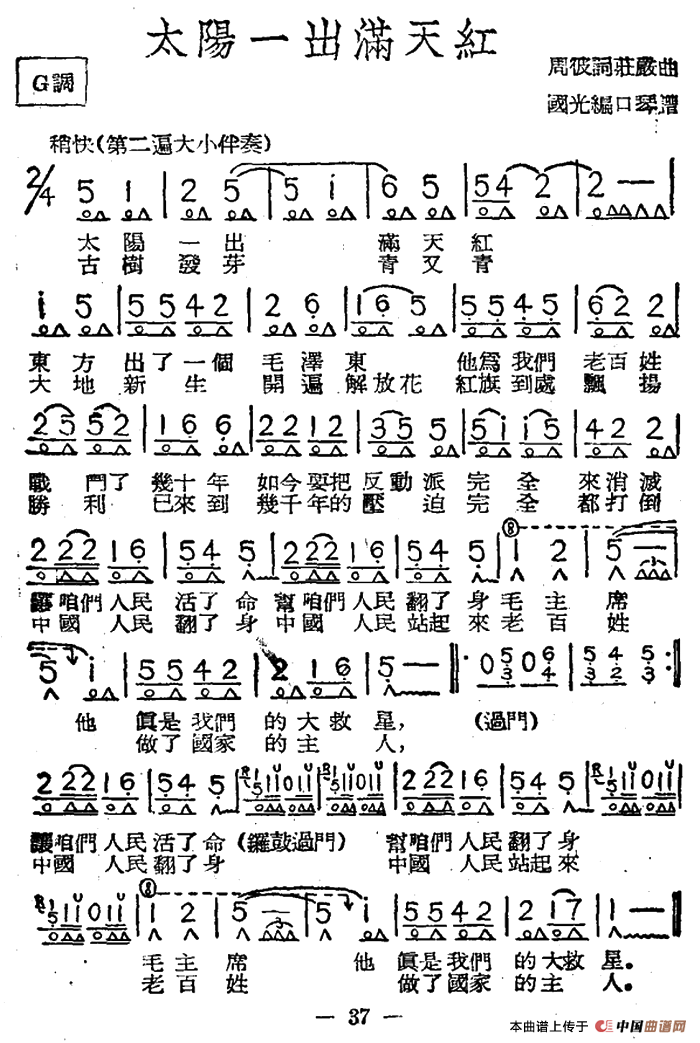 太陽一出滿天紅
G調
周彼詞莊嚴曲
國光編口琴譜
稍快(第二遍大小伴奏)
2/4 5 1 | 2 5 | 5 i | 6 5 | 54 2 | 2 —
太陽一出 滿天紅
古樹發芽 青又青
i 5 | 55 42 | 2 6 | 16 5 | 55 45 | 62 2
東方出了一個毛澤東 他為我們老百姓
大地新生 開遍解放花 紅旗到處飄揚
25 52 | 16 6 | 22 12 | 35 5 | 5i i5 | 42 2
戰鬥了幾十年 如今要把反動派完全來消滅
勝利 已來到幾千年的壓迫完全都打倒
2 22 16 | 54 5 | 2 22 16 | 54 5 | 1 2 | 5 —
讓咱們人民活了命幫咱們人民翻了身毛主席
中國人民翻了身中國人民站起來老百姓
5 i | 55 42 | 2 16 | 5 — 
他真是我們的大救星, (過門)
做了國家的主人,
2 22 16 | 54 5
讓咱們人民活了命(鑼鼓過門) 幫咱們人民翻了身
中國人民翻了身 中國人民站起來
i 2 | 5 — | 5 i | 55 42 | 2 17 | 1 —
毛主席 他真是我們的大救星.
老百姓 做了國家的主人.
— 37 —
本曲谱上传于 中国曲谱网